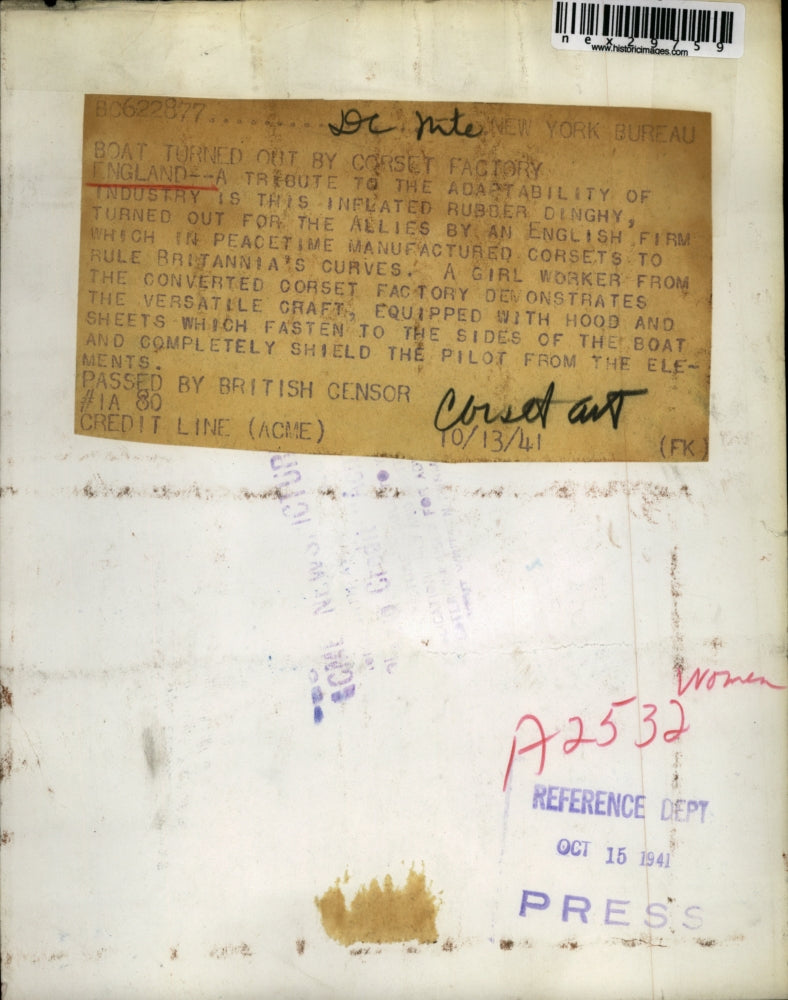 nex29759
www.historicimages.com
BC622877.......... NEW YORK BUREAU
BOAT TURNED OUT BY CORSET FACTORY
ENGLAND--A TRIBUTE TO THE ADAPTABILITY OF
INDUSTRY IS THIS INFLATED RUBBER DINGHY,
TURNED OUT FOR THE ALLIES BY AN ENGLISH FIRM
WHICH IN PEACETIME MANUFACTURED CORSETS TO
RULE BRITANNIA'S CURVES. A GIRL WORKER FROM
THE CONVERTED CORSET FACTORY DEMONSTRATES
THE VERSATILE CRAFT, EQUIPPED WITH HOOD AND
SHEETS WHICH FASTEN TO THE SIDES OF THE BOAT
AND COMPLETELY SHIELD THE PILOT FROM THE ELE-
MENTS.
PASSED BY BRITISH CENSOR
#1A 80
CREDIT LINE (ACME) 10/13/41 (FK)
Corset art
Women
A2532
REFERENCE DEPT
OCT 15 1941
PRESS